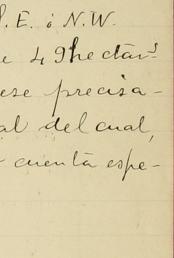 S. E. ó N. W.
e 49 hectar.s
ese precisa-
al del cual,
cuenta espe-